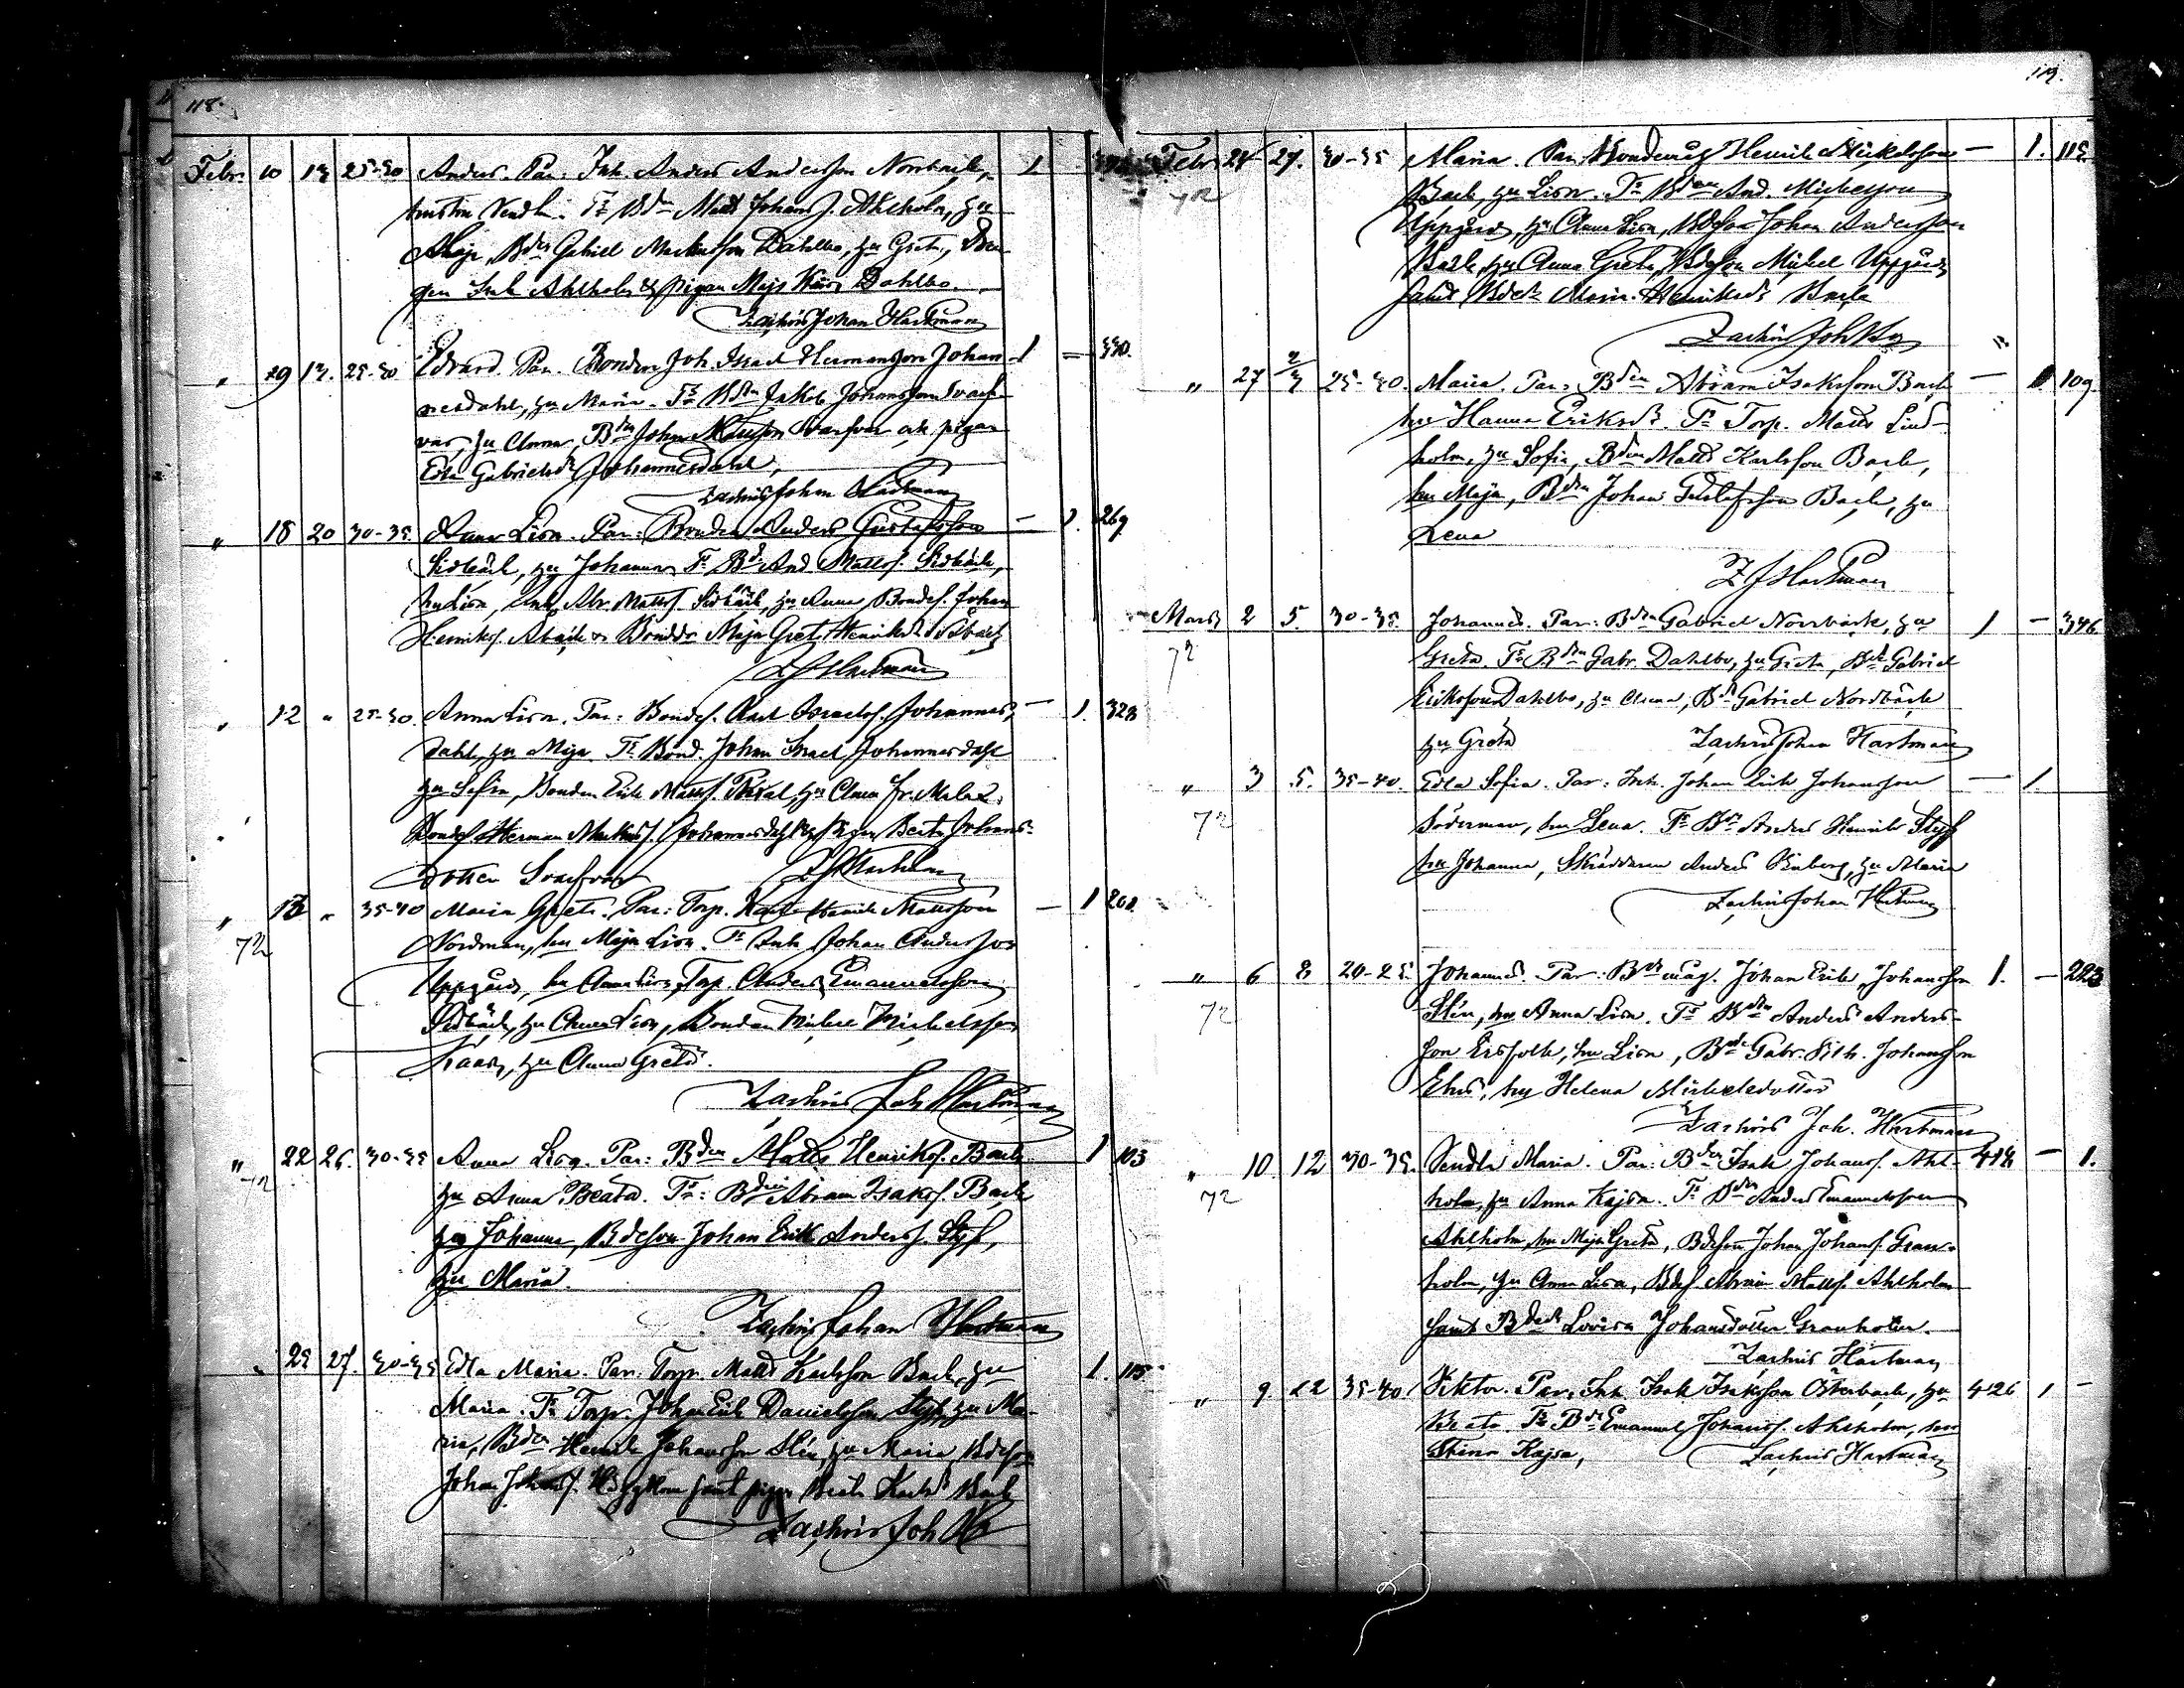 118.
Febr. 10 13 25-30 Anders. Par. Inh. Anders Andersson Norrbäck,
hustru Vendla. Fr Bdn Matts Johans J. Ahlholm, hu
Maja, Bdn Gabriel Markusson Dahlbo, hu Greta,
Ahlholm & pigan Maja Dahlbo.
Zachris Johan Hartman
" 29 13. 25-30 Edvard. Par. Bonden Joh. Israel Hermansson Johan- 1 — 330.
nesdahl, hu Maria. Fr Bdn Jakob Johansson Svarf-
var, hu Anna, Bdn Johan Svarfvar och pigan
Edla Gabrielsdr Johannesdahl,
Zachris Johan Hartman
" 18 20 30-35 Anna Lisa. Par: Bonden Anders Gustafsson — 1. 269
Sidbäck, hu Johanna. Fr Bdn And. Mattss. Sidbäck,
hu Lisa, Inh. Abr. Mattss. Sidbäck, hu Anna, Bondes. Johan
Henrikss. & Bonddr Maja Greta Henriksdr Sidbäck
Z J Hartman
" 12 " 25-30. Anna Lisa. Par: Bondes. Karl Israelss. Johannes- — 1. 328
dahl, hu Maja. Fr Bond. Johan Israel Johannesdahl
hu Sofia, Bonden Erik Mattss. hu Anna
Bondes. Herman Markuss. Johannesdahl & pigan Berta Johans-
dotter Svarfvar Z J Hartman
" 13 " 35-40 Maria Greta. Par: Torp. Karl Henrik Mattsson — 1 201
72 Nordman, hu Maja Lisa. Fr Inh. Johan Andersson
Uppgård, hu Anna Lisa, Torp. Anders Emanuelsson
Sidbäck, hu Anna Lisa, Bonden Mickel Mickelsson
hu Anna Greta.
Zachris Joh Hartman
" 22 26. 30-35 Anna Lisa. Par: Bden Matts Henrikss. Back 1 103
72 hu Anna Beata. Fr: Bden Abram Isakss. Back
hu Johanna, Bdeson Johan Erik Anderss. Styf,
hu Maria.
Zachris Johan Hartman
" 25 27. 30-35 Edla Maria. Par. Torp. Matts Karlsson Back, hu 1. 115
Maria. Fr Torp. Johan Erik Danielsson Styf, hu Ma-
ria, Bden Henrik Johansson Slin, hu Maria, Bdeson
Johan Johanss. samt pigan Karlsdr Back
Zachris Joh H
119.
Febr 24 27. 30-35 Maria. Par: Bondemåg Henrik Mickelsson — 1. 112
72 Back, hu Lisa. Fr Bden And. Mickelsson
Uppgård, hu Anna Lisa, Bdeson Johan Andersson
Back, hu Anna Greta, Bdeson Mickel Uppgård
samt Bdedr Maria Henriksdr Back
Zachris Joh H
" 27 2/3 25-30. Maria. Par: Bden Abram Isaksson Back — 1 109.
hu Hanna Eriksdr. Fr Torp. Matts Lind-
holm, hu Sofia, Bden Matts Karlsson Back,
hu Maja, Bden Johan Gustafsson Back, hu
Lena
Z J Hartman
Mars 2 5. 30-35. Johannes. Par: Bden Gabriel Norrbäck, hu 1 — 346
72 Greta. Fr Bden Gabr. Dahlbo, hu Greta, Bde Gabriel
Eriksson Dahlbo, hu Anna, Bde Gabriel Nordbäck
hu Greta Zachris Johan Hartman
" 3 5. 35-40. Edla Sofia. Par: Inh. Johan Erik Johansson — 1.
72 Söderman, hu Lena. Fr Bdn Anders Henrik Styf
hu Johanna, Skräddaren Anders hu Maria
Zachris Johan Hartman
" 6 8 20-25. Johannes. Par: Bdemåg. Johan Erik Johansson 1. — 223
72 Slin, hu Anna Lisa. Fr Bden Anders Anders-
son Ersfolk, hu Lisa, Bde Gabr. Johansson
hu Helena Mickelsdotter
Zachris Joh. Hartman
" 10. 12 30-35. Vendla Maria. Par: Bden Isak Johanss. Ahl- 414 — 1.
72 holm, hu Anna Kajsa. Fr Bden Anders Emanuelsson
Ahlholm, hu Maja Greta, Bdeson Johan Johanss. Gran-
holm, hu Anna Lisa, Bdes. Abram Mattss. Ahlholm
samt Bdedr Lovisa Johansdotter Granholm.
Zachris Hartman
" 9. 12 35-40. Viktor. Par: Inh. Isak Isaksson Österback, hu 426 1 —
Beata. Fr Bde Emanuel Johanss. Ahlholm, hu
Stina Kajsa, Zachris Hartman